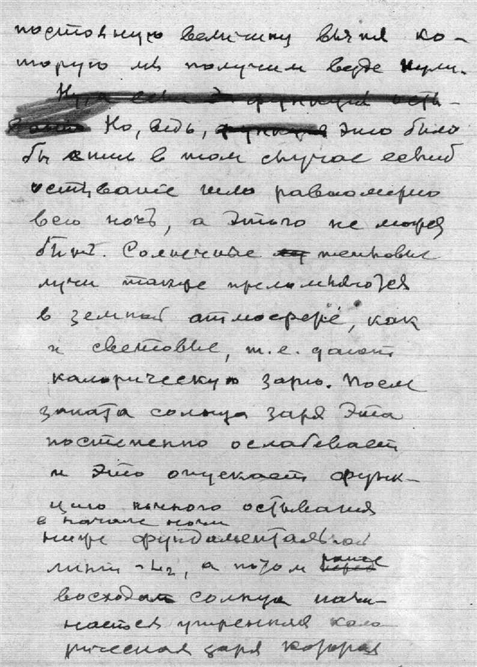 постоянную величину вычтя ко-
торую мы получим везде нули.
Ну, а если функция есть-
Но, ведь, функция это было
бы лишь в том случае еслиб
остывание шло равномерно
всю ночь, а этого не может
быть. Солнечные тепловые
лучи также преломляются
в земной атмосфере, как
и световые, т.е. дают
калорическую зарю. После
заката солнца заря эта
постепенно ослабевает
и это опускает функ-
цию ночного остывания
в начале ночи
ниже фундаментальной
линии -L2, а потом
восхода солнца начи-
нается утренняя кало
рическая заря которая